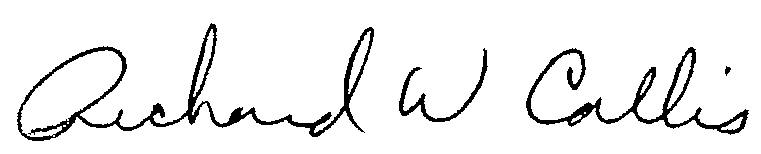 Richard W Callis